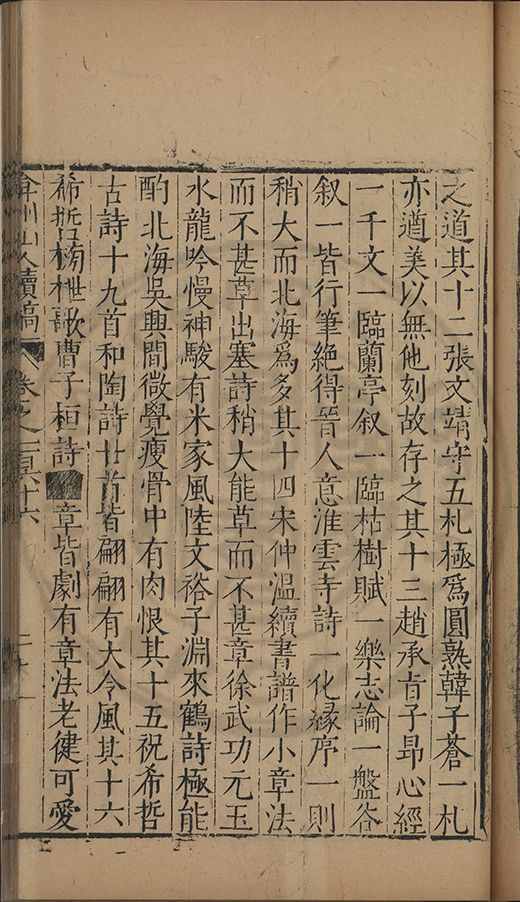 之道其十二張文靖守五札極爲圓熟韓子蒼一札
亦遒美以無他刻故存之其十三趙承旨子昻心經
一千文一臨蘭亭叙一臨枯樹賦一樂志論一盤谷
叙一皆行筆絶得晉人意淮雲寺詩一化縁序一則
稍大而北海爲多其十四宋仲溫續書譜作小章法
而不甚草出塞詩稍大能草而不甚章徐武功元玉
水龍吟慢神駿有米家風陸文裕子淵來鶴詩極能
酌北海吳興間微覺瘦骨中有肉恨其十五祝希哲
古詩十九首和陶詩廿首皆翩翩有大令風其十六
希哲榜枻歌曹子桓詩 章皆劇有章法老健可愛
弇州山人續稿 卷之一百六十六